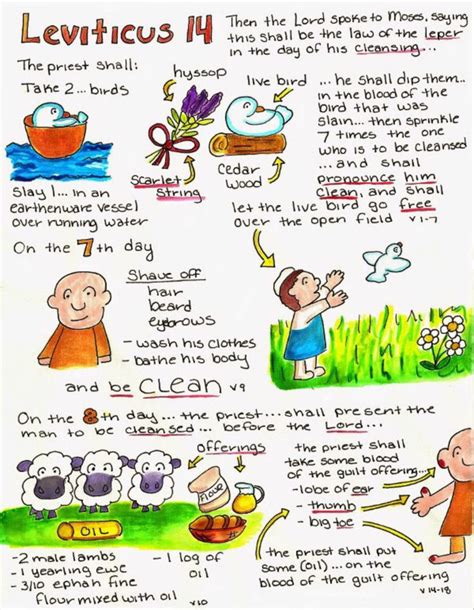 Leviticus 14
Then the Lord spoke to Moses, saying
this shall be the law of the leper
in the day of his cleansing...
The priest shall:
Take 2... birds
hyssop
live bird
Scarlet
String
Cedar
Wood
Slay 1... in an
earthenware vessel
over running water
...he shall dip them..
in the blood of the
bird that was
slain... then sprinkle
7 times the one
who is to be cleansed
...and shall
pronounce him
clean, and shall
let the live bird go free
over the open field v1-7
On the 7th day
Shave off
hair
beard
eyebrows
- wash his clothes
- bathe his body
and be CLEAN v9
On the 8th day... the priest... shall present the
man to be cleansed... before the Lord...
offerings
FLOUR
OIL
- 2 male lambs
- 1 yearling ewe
- 3/10 ephah fine
flour mixed with oil
- 1 log of
oil
v10
the priest shall
take some blood
of the guilt offering...
- lobe of ear
- thumb
- big toe
the priest shall put
some (oil)... on the
blood of the guilt offering
v14-18